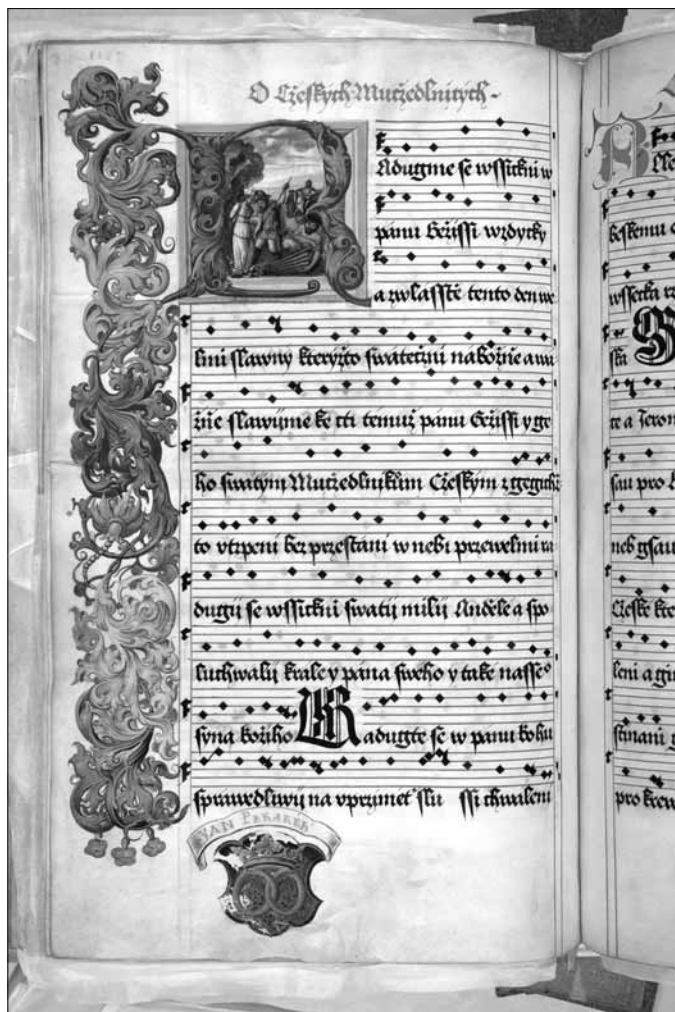 O Cžeſkých Mučžedlnitých
Radugme ſe wſſickni w
pánu Gežiſſi wždycky
a zwlaſſtě tento den we
lmi ſlawny kteryžto ſwátečžni nábožně a wá
žně ſlawijme ke cti témuž pánu Gežiſſi y ge
ho ſwatým Mučžedlnikům Cžeſkým z gegichž
to vtrpeni bez przeſtáni w nebi przewelmi ra
dugij ſe wſſickni ſwatij milij Andělé a ſpo
luchwalij krále y pána ſweho y také naſſeº
ſyna božiho Radugte ſe w pánu kohu
ſprawedliwij na vprzijmeˊ ſlu ſſi chwaleni
YAN PEKAREK
beſkemu
wſſecka
ſká
te a Jeron
ſau pro
neb gſau
Cžeſke kte
leni a gin
ſtinani
pro krew